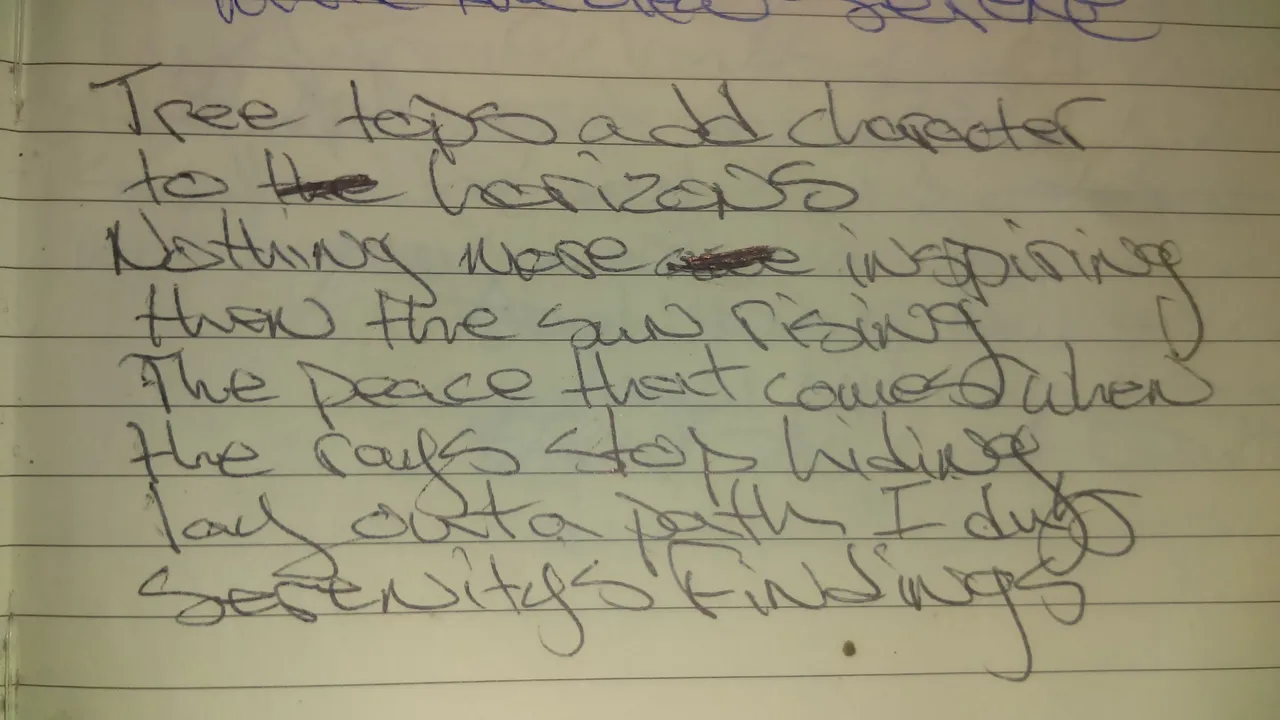 serene
Tree tops add character
to the horizons
Nothing more inspiring
then the sun rising
The peace that comes when
the rays stop hiding
lay out a path I
serenitys findings